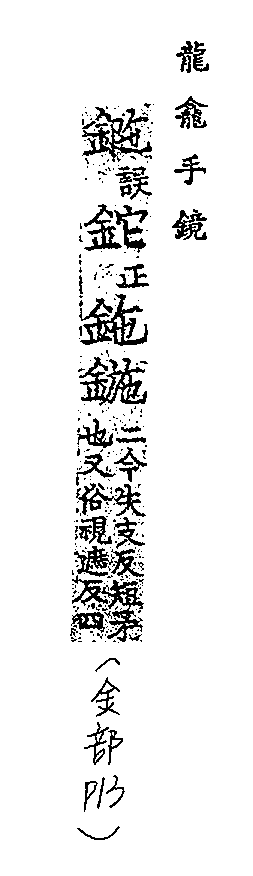 龍龕手鏡
誤鉈正鉇鍦二今失支反短矛
也又俗視遮反四
（金部P13）